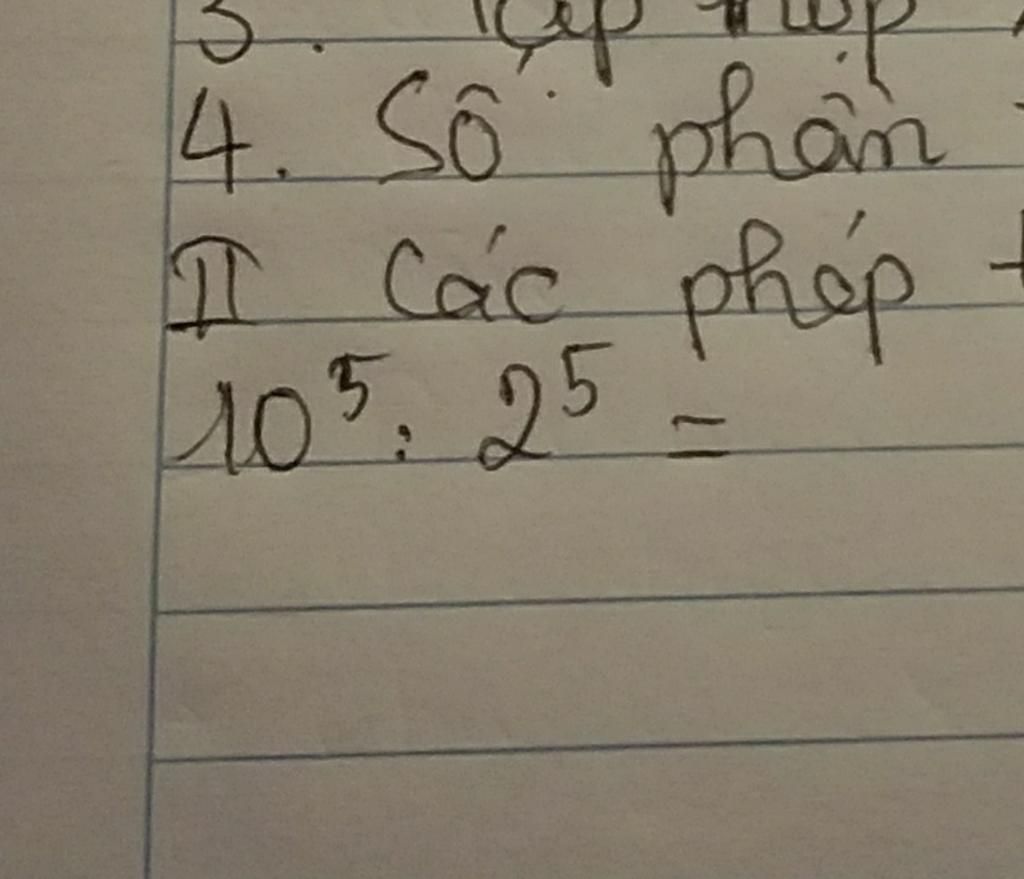 3. Tập hợp
4. Số phần
II Các phép
10⁵ : 2⁵ =